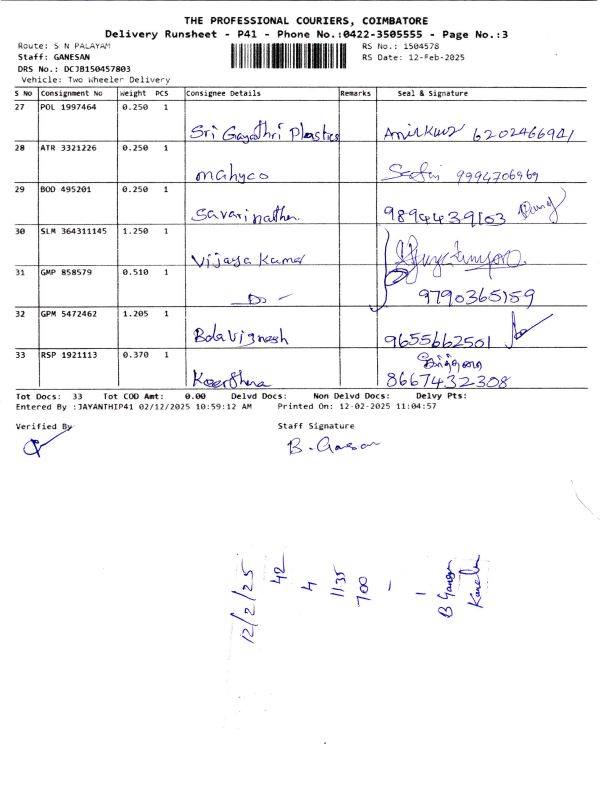 THE PROFESSIONAL COURIERS, COIMBATORE
Delivery Runsheet - P41 - Phone No.:0422-3505555 - Page No.:3
Route: S N PALAYAM RS No.: 1504578
Staff: GANESAN RS Date: 12-Feb-2025
DRS No.: DCJB150457803
Vehicle: Two Wheeler Delivery
S NO Consignment No Weight PCS Consignee Details Remarks Seal & Signature
27 POL 1997464 0.250 1
Sri Gayathri Plastics 6202466941
28 ATR 3321226 0.250 1
mahyco 9994706969
29 BOD 495201 0.250 1
Savarinathan 9894439103
30 SLM 364311145 1.250 1
Vijaya Kumar
31 GMP 858579 0.510 1
Do - 9790365159
32 GPM 5472462 1.205 1
Bala Vignesh 9655662501
33 RSP 1921113 0.370 1
Keerthana 8667432308
Tot Docs: 33 Tot COD Amt: 0.00 Delvd Docs: Non Delvd Docs: Delvy Pts:
Entered By :JAYANTHIP41 02/12/2025 10:59:12 AM Printed On: 12-02-2025 11:04:57
Verified By Staff Signature
12/2/25
42
4
11:35
700
-
1
B Ganesan